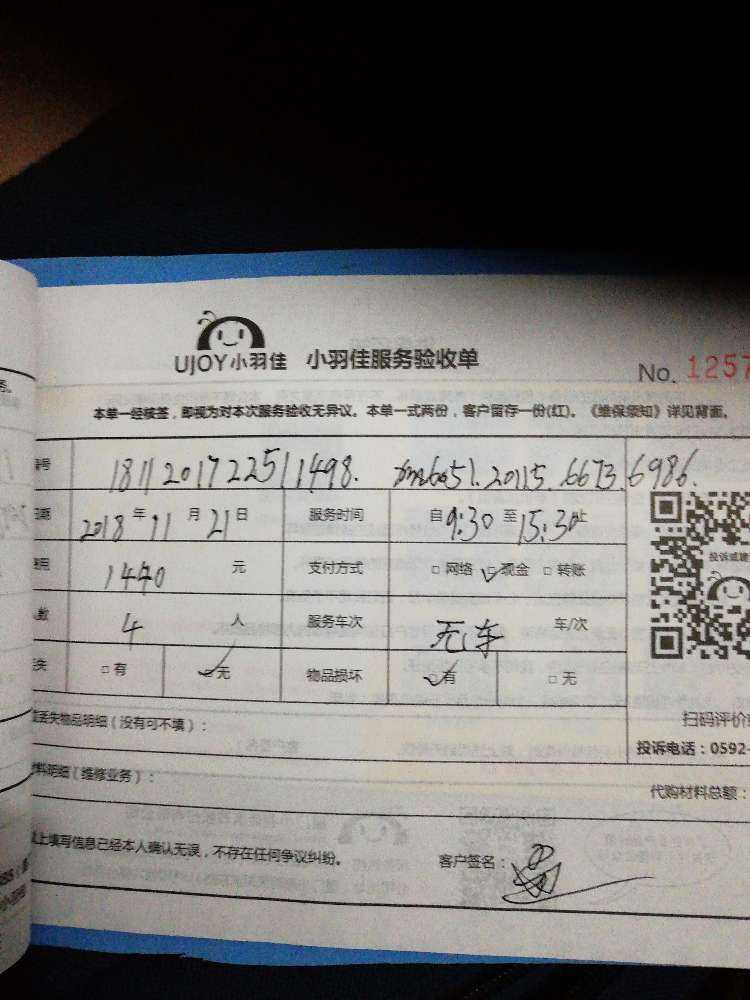 UJOY小羽佳 小羽佳服务验收单 No. 1257
本单一经核签，即视为对本次服务验收无异议。本单一式两份，客户留存一份(红)。《维保须知》详见背面。
号 181120172251498.
6673.6986.
期 2018年11月21日 服务时间 自9:30至15:30止
用 1440元 支付方式 □网络 ☑现金 □转账
数 4人 服务车次 无车 车/次
失 □有 ☑无 物品损坏 ☑有 □无
丢失物品明细（没有可不填）：
料明细（维修业务）：
上填写信息已经本人确认无误，不存在任何争议纠纷。 客户签名：
投诉或建
扫码评价
投诉电话：0592-
代购材料总额：